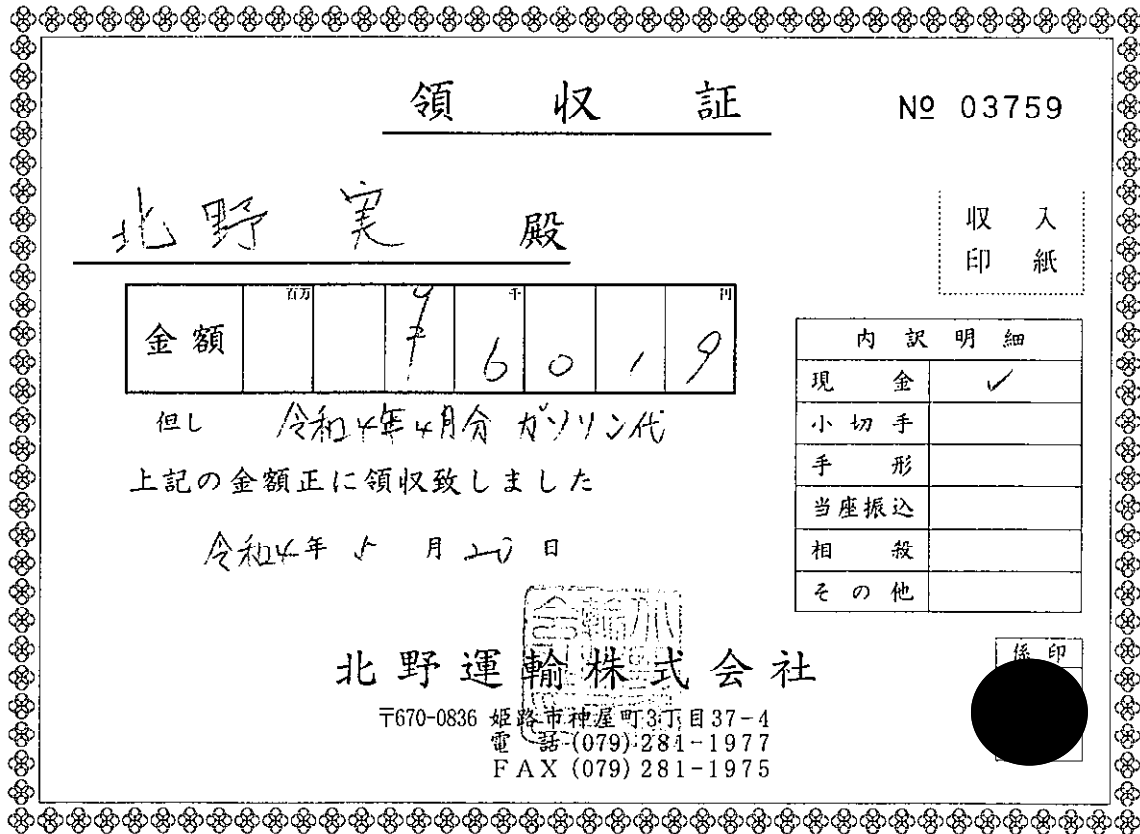 領収証
№ 03759
北野 実 殿
収入
印紙
金額 百万 千 円
¥6019
但し 令和4年4月分 ガソリン代
上記の金額正に領収致しました
令和4年 5月 20日
内訳明細
現金 ✓
小切手
手形
当座振込
相殺
その他
係印
北野運輸株式会社
〒670-0836 姫路市神屋町3丁目37-4
電話 (079) 281-1977
FAX (079) 281-1975